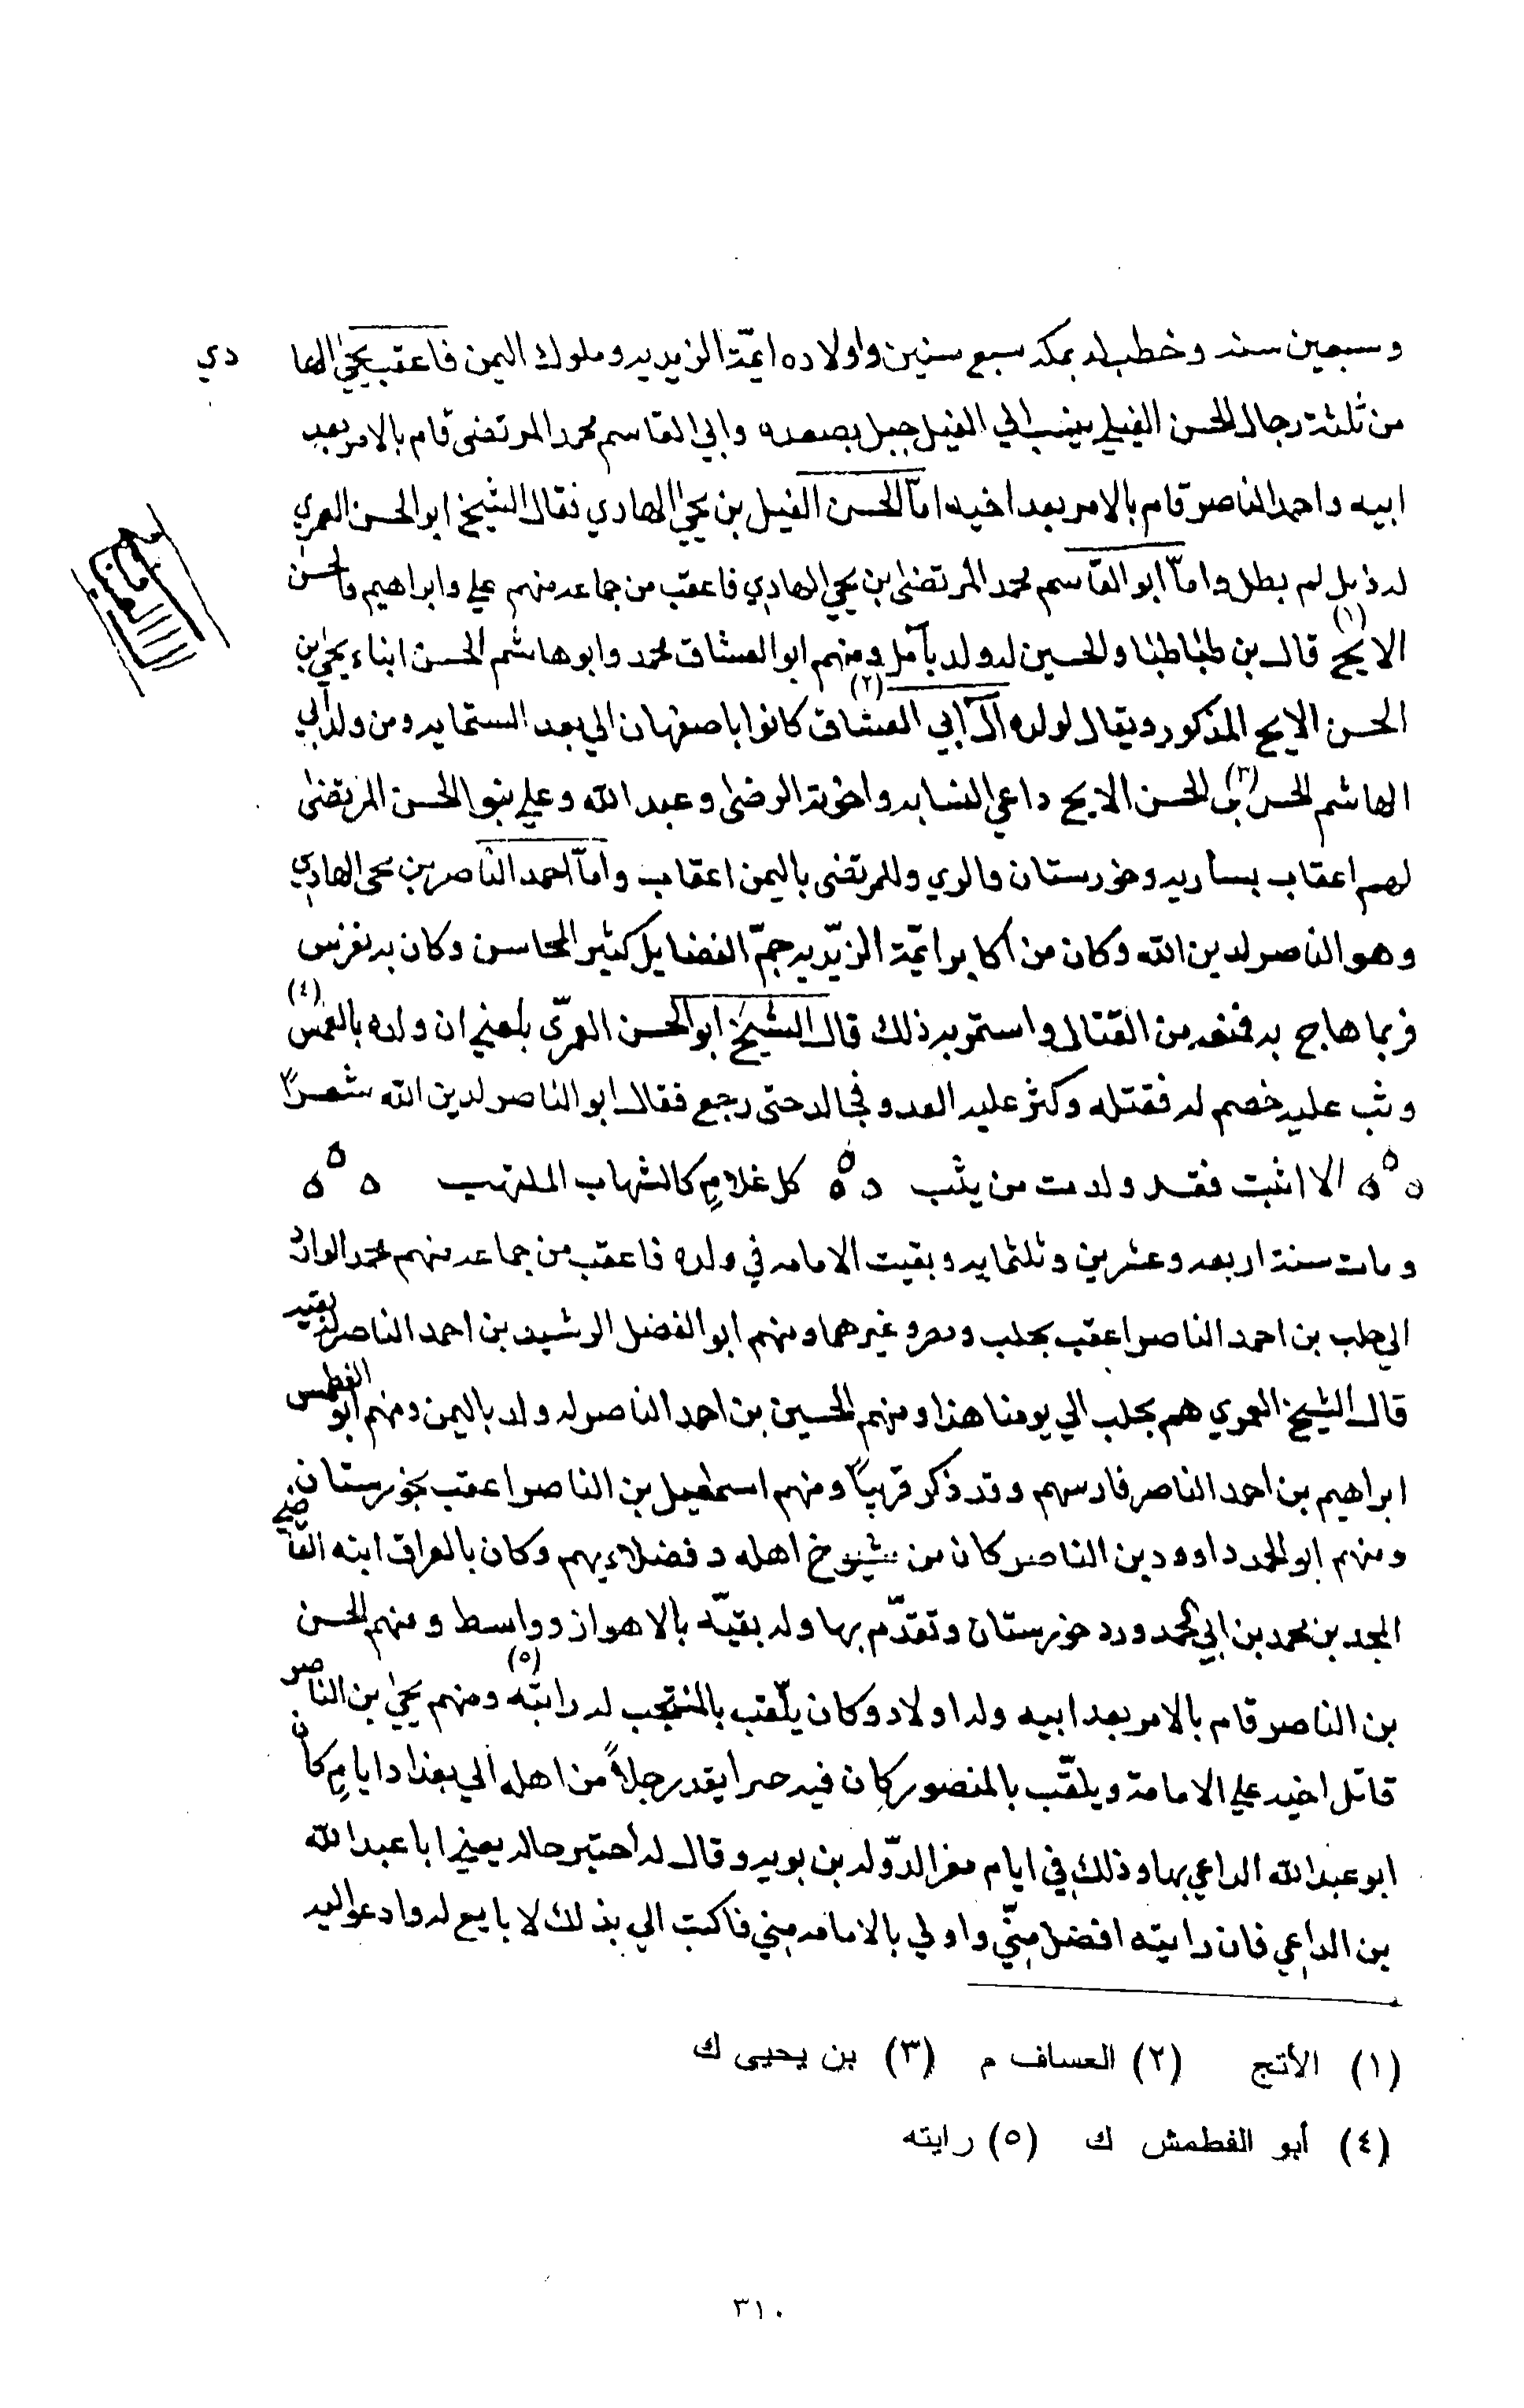 وسبعين سنه وخطب له بمكه سبع سنين واولاده ايمّة الزيديه وملوك اليمن فاعقب يحيى الهادي
من ثلثة رجال الحسن الفيلي ينسب الي الفيل جبل بصعده وابي القاسم محمد المرتضى قام بالامر بعد
ابيه واحمد الناصر قام بالامر بعد اخيه امّا الحسن الفيل بن يحيى الهادي فقال الشيخ ابو الحسن العمري
له ذيل لم يطل وامّا ابو القاسم محمد المرتضى بن يحيى الهادي فاعقب من جماعه منهم علي وابراهيم والحسن
الايج (١) قال بن طباطبا والحسين له ولد بآمل ومنهم ابو العشاق محمد وابو هاشم الحسن ابناء يحيى بن
الحسن الايج المذكور ويقال لولده آل ابي العشاق (٢) كانوا باصفهان الي بعد الستمايه ومن ولد ابي
الهاشم الحسن (٣) بن الحسن الايج داعي النسابه واخوته الرضى وعبد الله وعلي بنو الحسن المرتضى
لهم اعقاب بساريه وخورستان والري وللمرتضى باليمن اعقاب وامّا احمد الناصر بن يحيى الهادي
وهو الناصر لدين الله وكان من اكابر ايمّة الزيّديه جمّ الفضايل كثير المحاسن وكان به نقرس
فربما هاج به فمنعه من القتال واستمر به ذلك قال الشيخ ابو الحسن العمريّ بلغني ان ولده (٤)
وثب عليه خصم له فقتله وكثر عليه العدو فجالد حتى رجع فقال ابو الناصر لدين الله شعراً
الا اثبت فقد ولدت من يثب كل غلامٍ كالشهاب الملتهب
ومات سنة اربعه وعشرين وثلثمايه وبقيت الامامه في ولده فاعقب من جماعه منهم محمد الوارد
الي حلب بن احمد الناصر اعقب بحلب ومصر وغيرهما ومنهم ابو الفضل الرشيد بن احمد الناصر له بقيه
قال الشيخ العمري هم بحلب الي يومنا هذا ومنهم الحسين بن احمد الناصر له ولد باليمن ومنهم ابو الغطمس
ابراهيم بن احمد الناصر فارسهم وقد ذكر قريباً ومنهم اسمعيل بن الناصر اعقب بخورستان
ومنهم ابو الحمد داوود بن الناصر كان من شيوخ اهله و فضلاءيهم وكان بالعراق ابنه القاضي
المجد بن محمد بن ابي الحمد ورد خورستان وتقدّم بها وله بقيّه بالاهواز وواسط ومنهم الحسن
بن الناصر قام بالامر بعد ابيه وله اولاد وكان يلّقب بالمنتجب له رايته (٥) ومنهم يحيى بن الناصر
قاتل اخيه علي الامامة ويلقّب بالمنصور كان فيه يقد رجلاً من اهله الي بغداد ايامٍ كان
ابو عبد الله الداعي بها وذلك في ايام معز الدّوله بن بويه وقال له اختبر حاله يعني ابا عبد الله
بن الداعي فان رايته افضل منّي واولي بالامامه مني فاكتب الي بذلك لا بايع له وادعوا اليه
(١) الأتج (٢) العساف م (٣) بن يحيى ك
(٤) أبو الغطمش ك (٥) رايته
٣١٠